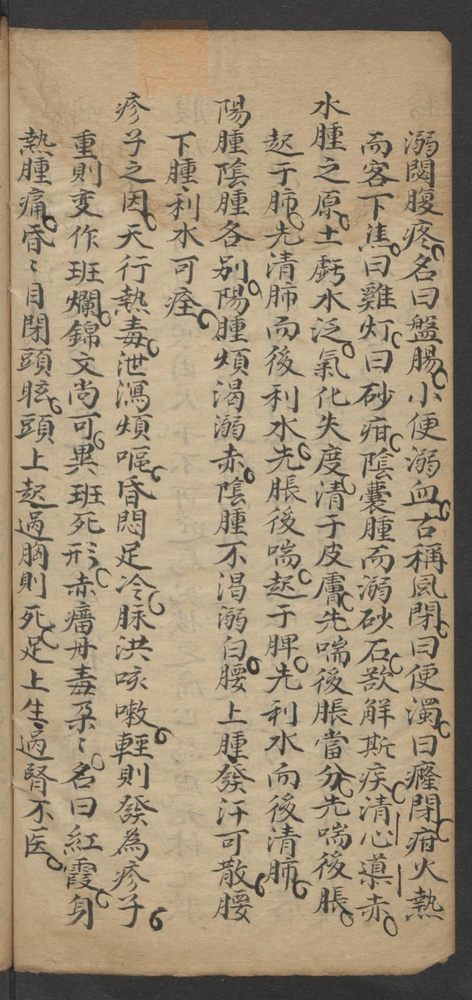 溺閟腹疼名曰盤腸小便溺血古稱風閉曰便濁曰癃閉疳火熱
而客下焦曰雞灯曰砂疳陰囊腫而溺砂石欲解斯疾清心導赤
水腫之原土虧水泛氣化失度清于皮膚先喘後脹當分先喘後脹
起于肺先清肺而後利水先脹後喘起于脾先利水而後清肺
陽腫陰腫各別陽腫煩渴溺赤陰腫不渴溺白腰上腫發汗可散腰
下腫利水可痊
疹子之因天行熱毒泄瀉煩嘔昏悶足冷脉洪咳嗽輕則發為疹子
重則变作班爛錦文尚可異班死形赤瘤丹毒朶〻名曰紅霞身
熱腫痛昏〻目閉頭眩頭上起過胸則死足上生過腎不医